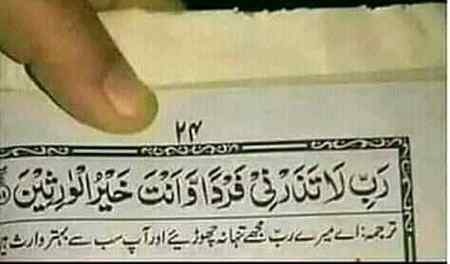 ۲۴
رَبِّ لَا تَذَرْنِیْ فَرْدًا وَّاَنْتَ خَیْرُ الْوٰرِثِیْنَ
ترجمہ: اے میرے ربّ مجھے تنہا نہ چھوڑیئے اور آپ سب سے بہتر وارث ہیں